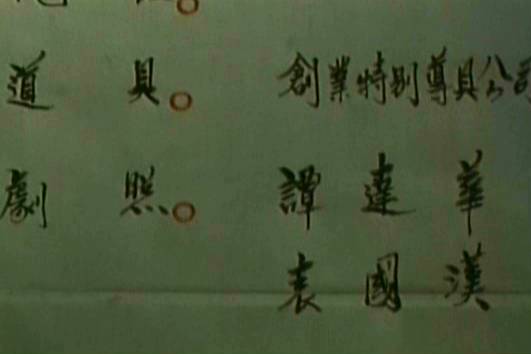 道具。創業特別導具公司
劇照。譚達華
袁國漢